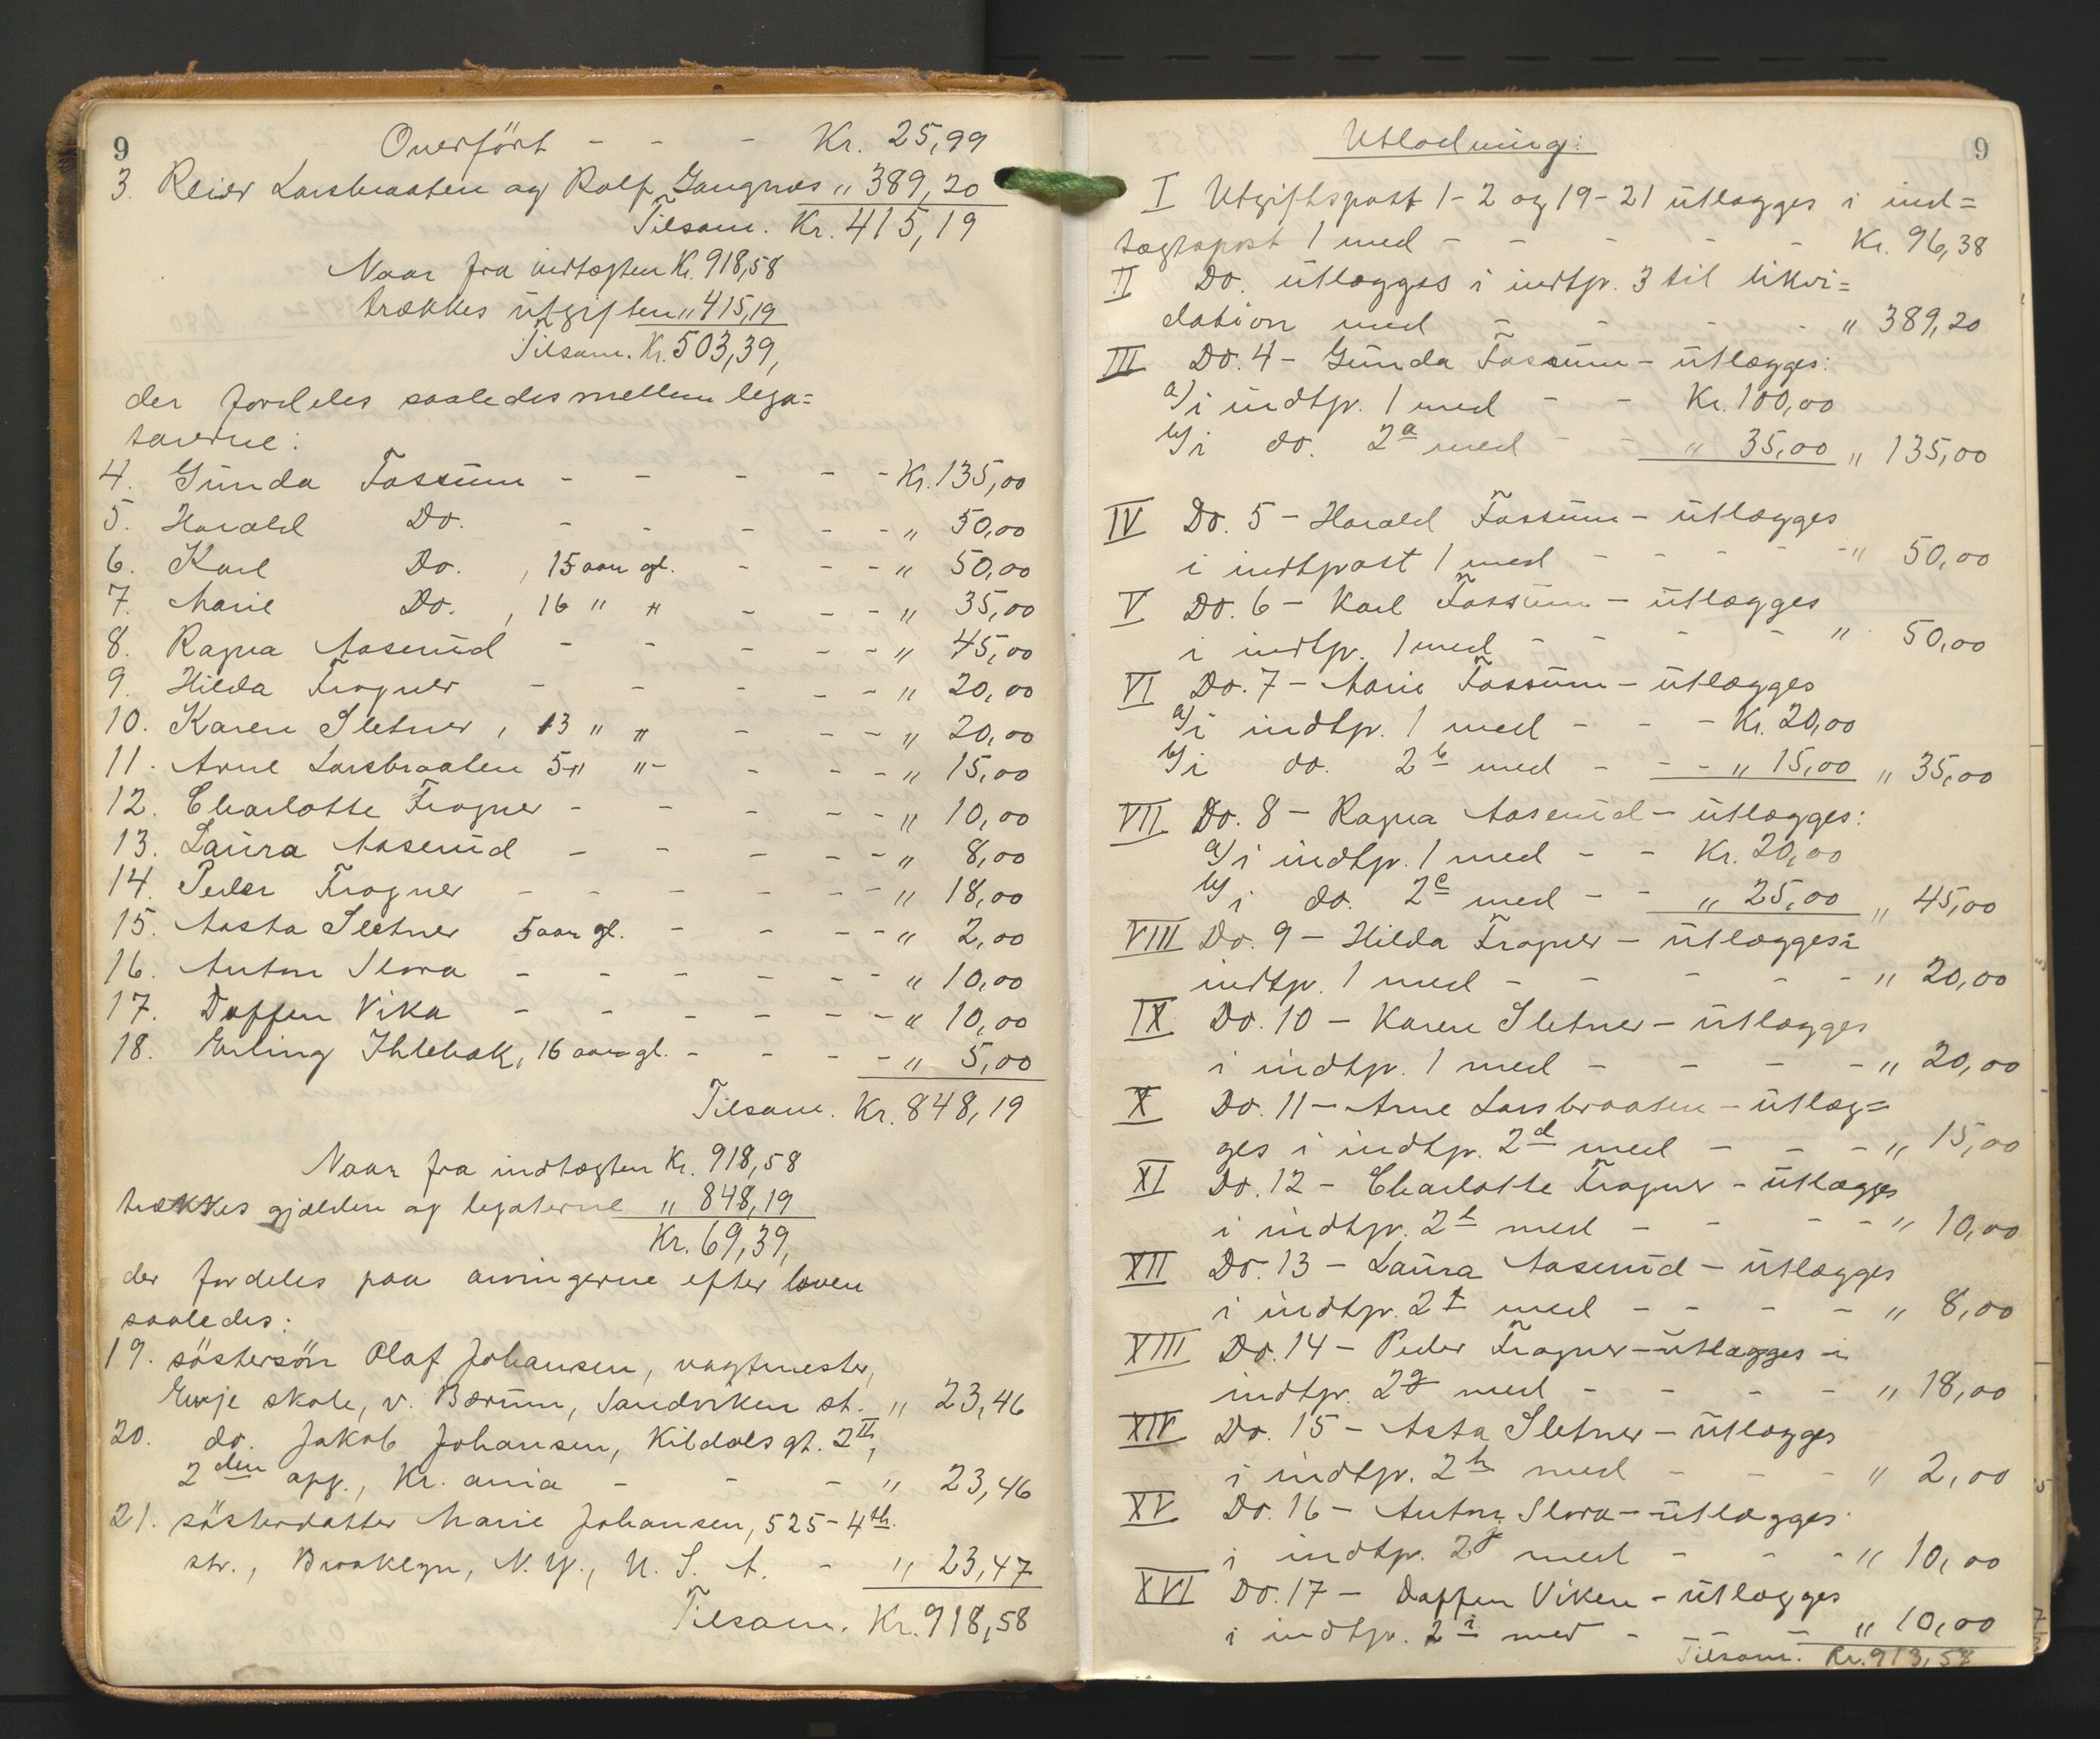 9
Overfört - - - Kr. 25,99
3. Reier Larsbraaten og Rolf Gangnæs " 389,20
Tilsam. Kr. 415,19
Naar fra indtægten Kr. 918,58
trækkes utgiften " 415,19
Tilsam. Kr. 503,39,
der fordeles saaledes mellem lega=
tarerne:
4. Gunda Fossum - - - - - Kr. 135,00
5. Harald Do. - - - - - " 50,00
6. Karl Do. , 15 aar gl. - - - " 50,00
7. Marie Do. , 16 " " - - - " 35,00
8. Ragna Aaserud - - - - - " 45,00
9. Hilda Frogner - - - - - " 20,00
10. Karen Sletner , 13 " " - - - " 20,00
11. Arne Larsbraaten 5 " " - - - - " 15,00
12. Charlotte Frogner - - - - - " 10,00
13. Laura Aaserud - - - - - " 8,00
14. Peder Frogner - - - - - - " 18,00
15. Aasta Sletner 5 aar gl. - - - - " 2,00
16. Anton Slora - - - - - - " 10,00
17. Doffen Vika - - - - - - " 10,00
18. Erling Ihlebæk, 16 aar gl. - - - - " 5,00
Tilsam. Kr. 848,19
Naar fra indtægten Kr. 918,58
trækkes gjælden og legaterne " 848,19
Kr. 69,39,
der fordeles paa arvingerne efter loven
saaledes:
19. söstersön Olaf Johansen, vagtmester,
Evje skole, v. Bærum, Sandviken st. " 23,46
20. do. Jakob Johansen, Kildals gt. 2 II,
2den opg., Kr. ania - - - " 23,46
21. sösterdatter Marie Johansen, 525 - 4th.
str., Brooklyn, N. Y., U. S. A. - " 23,47
Tilsam. Kr. 918,58
Utlodning: 9
I Utgiftspost 1-2 og 19-21 utlægges i ind=
tægtspost 1 med - - - - - Kr. 96,38
II Do. utlægges i indtp. 3 til likvi=
dation med - - - - " 389,20
III Do. 4 - Gunda Fossum - utlægges:
a/ i indtp. 1 med - - Kr. 100,00
b/ i do. 2a med - - " 35,00 " 135,00
IV Do. 5 - Harald Fossum - utlægges
i indtpost 1 med - - - - - " 50,00
V Do. 6 - Karl Fossum - utlægges
i indtp. 1 med - - - - " 50,00
VI Do. 7 - Marie Fossum - utlægges
a/ i indtp. 1 med - - - Kr. 20,00
b/ i do. 2b med - - - " 15,00 " 35,00
VII Do. 8 - Ragna Aaserud - utlægges:
a/ i indtp. 1 med - - Kr. 20,00
b/ i do. 2c med - - " 25,00 " 45,00
VIII Do. 9 - Hilda Frogner - utlægges i
indtp. 1 med - - - - - " 20,00
IX Do. 10 - Karen Sletner - utlægges
i indtp. 1 med - - - - " 20,00
X Do. 11 - Arne Larsbraaten - utlæg=
ges i indtp. 2d med - - - " 15,00
XI Do. 12 - Charlotte Frogner - utlægges
i indtp. 2e med - - - - " 10,00
XII Do. 13 - Laura Aaserud - utlægges
i indtp. 2f med - - - - " 8,00
XIII Do. 14 - Peder Frogner - utlægges i
indtp. 2g med - - - - " 18,00
XIV Do. 15 - Asta Sletner - utlægges
i indtp. 2h med - - - " 2,00
XV Do. 16 - Anton Slora - utlægges
i indtp. 2j med - - - " 10,00
XVI Do. 17 - Doffen Viken - utlægges
i indtp. 2i med - - - " 10,00
Tilsam. Kr. 913,58